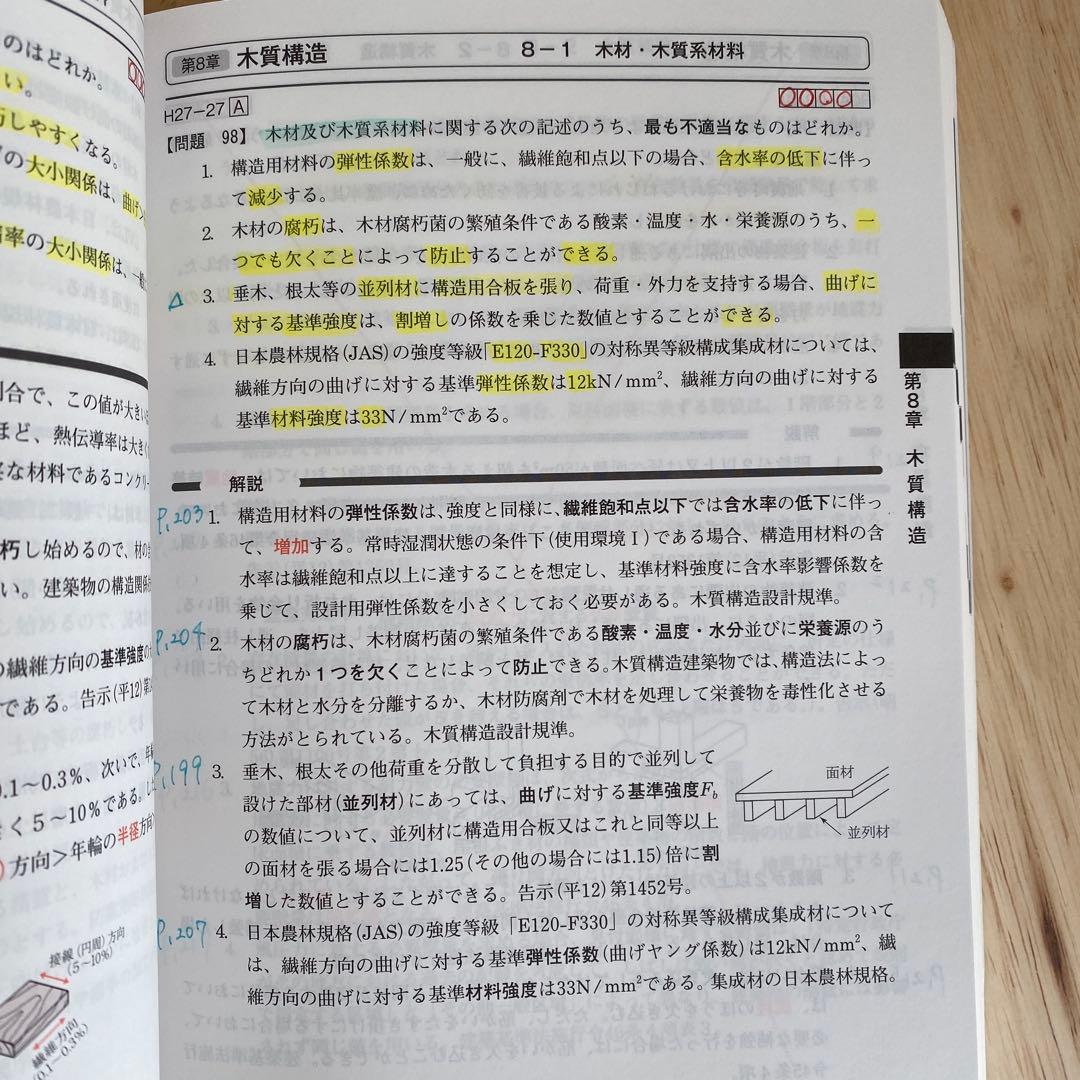 のはどれか。
い。
しやすくなる。
の大小関係は、曲げ
率の大小関係は、一般
合で、この値が大きい
ほど、熱伝導率は大き
な材料であるコンクリー
朽し始めるので、材の
い。建築物の構造関係
の繊維方向の基準強度の
である。告示(平12)第
0.1～0.3%、次いで、年輪
く5～10%である。
方向＞年輪の半径方向
接線(円周)方向
(5～10%)
繊維方向
(0.1～0.3%)
第8章 木質構造 8－1 木材・木質系材料
H27－27 A
【問題 98】 木材及び木質系材料に関する次の記述のうち、最も不適当なものはどれか。
1. 構造用材料の弾性係数は、一般に、繊維飽和点以下の場合、含水率の低下に伴っ
て減少する。
2. 木材の腐朽は、木材腐朽菌の繁殖条件である酸素・温度・水・栄養源のうち、一
つでも欠くことによって防止することができる。
△ 3. 垂木、根太等の並列材に構造用合板を張り、荷重・外力を支持する場合、曲げに
対する基準強度は、割増しの係数を乗じた数値とすることができる。
4. 日本農林規格(JAS)の強度等級「E120-F330」の対称異等級構成集成材については、
繊維方向の曲げに対する基準弾性係数は12kN/mm²、繊維方向の曲げに対する
基準材料強度は33N/mm²である。
解説
P,203 1. 構造用材料の弾性係数は、強度と同様に、繊維飽和点以下では含水率の低下に伴っ
て、増加する。常時湿潤状態の条件下(使用環境Ⅰ)である場合、構造用材料の含
水率は繊維飽和点以上に達することを想定し、基準材料強度に含水率影響係数を
乗じて、設計用弾性係数を小さくしておく必要がある。木質構造設計規準。
P,204 2. 木材の腐朽は、木材腐朽菌の繁殖条件である酸素・温度・水分並びに栄養源のう
ちどれか1つを欠くことによって防止できる。木質構造建築物では、構造法によっ
て木材と水分を分離するか、木材防腐剤で木材を処理して栄養物を毒性化させる
方法がとられている。木質構造設計規準。
P,199 3. 垂木、根太その他荷重を分散して負担する目的で並列して
設けた部材(並列材)にあっては、曲げに対する基準強度Fb
の数値について、並列材に構造用合板又はこれと同等以上
の面材を張る場合には1.25(その他の場合には1.15)倍に割
増した数値とすることができる。告示(平12)第1452号。
面材
並列材
P,207 4. 日本農林規格(JAS)の強度等級「E120-F330」の対称異等級構成集成材について
は、繊維方向の曲げに対する基準弾性係数(曲げヤング係数)は12kN/mm²、繊
維方向の曲げに対する基準材料強度は33N/mm²である。集成材の日本農林規格。
第8章 木質構造